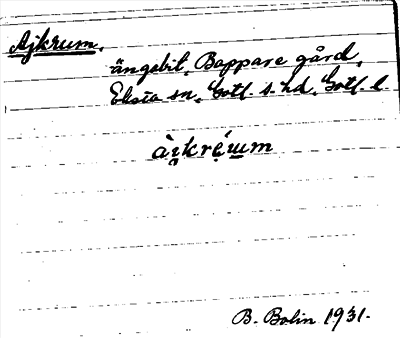 Ajkrum,
ängsbit, Bappare gård,
Eksta sn, Gotl. s. hd, Gotl. l.
ài̯kre̜ɯm
B. Bolin 1931.